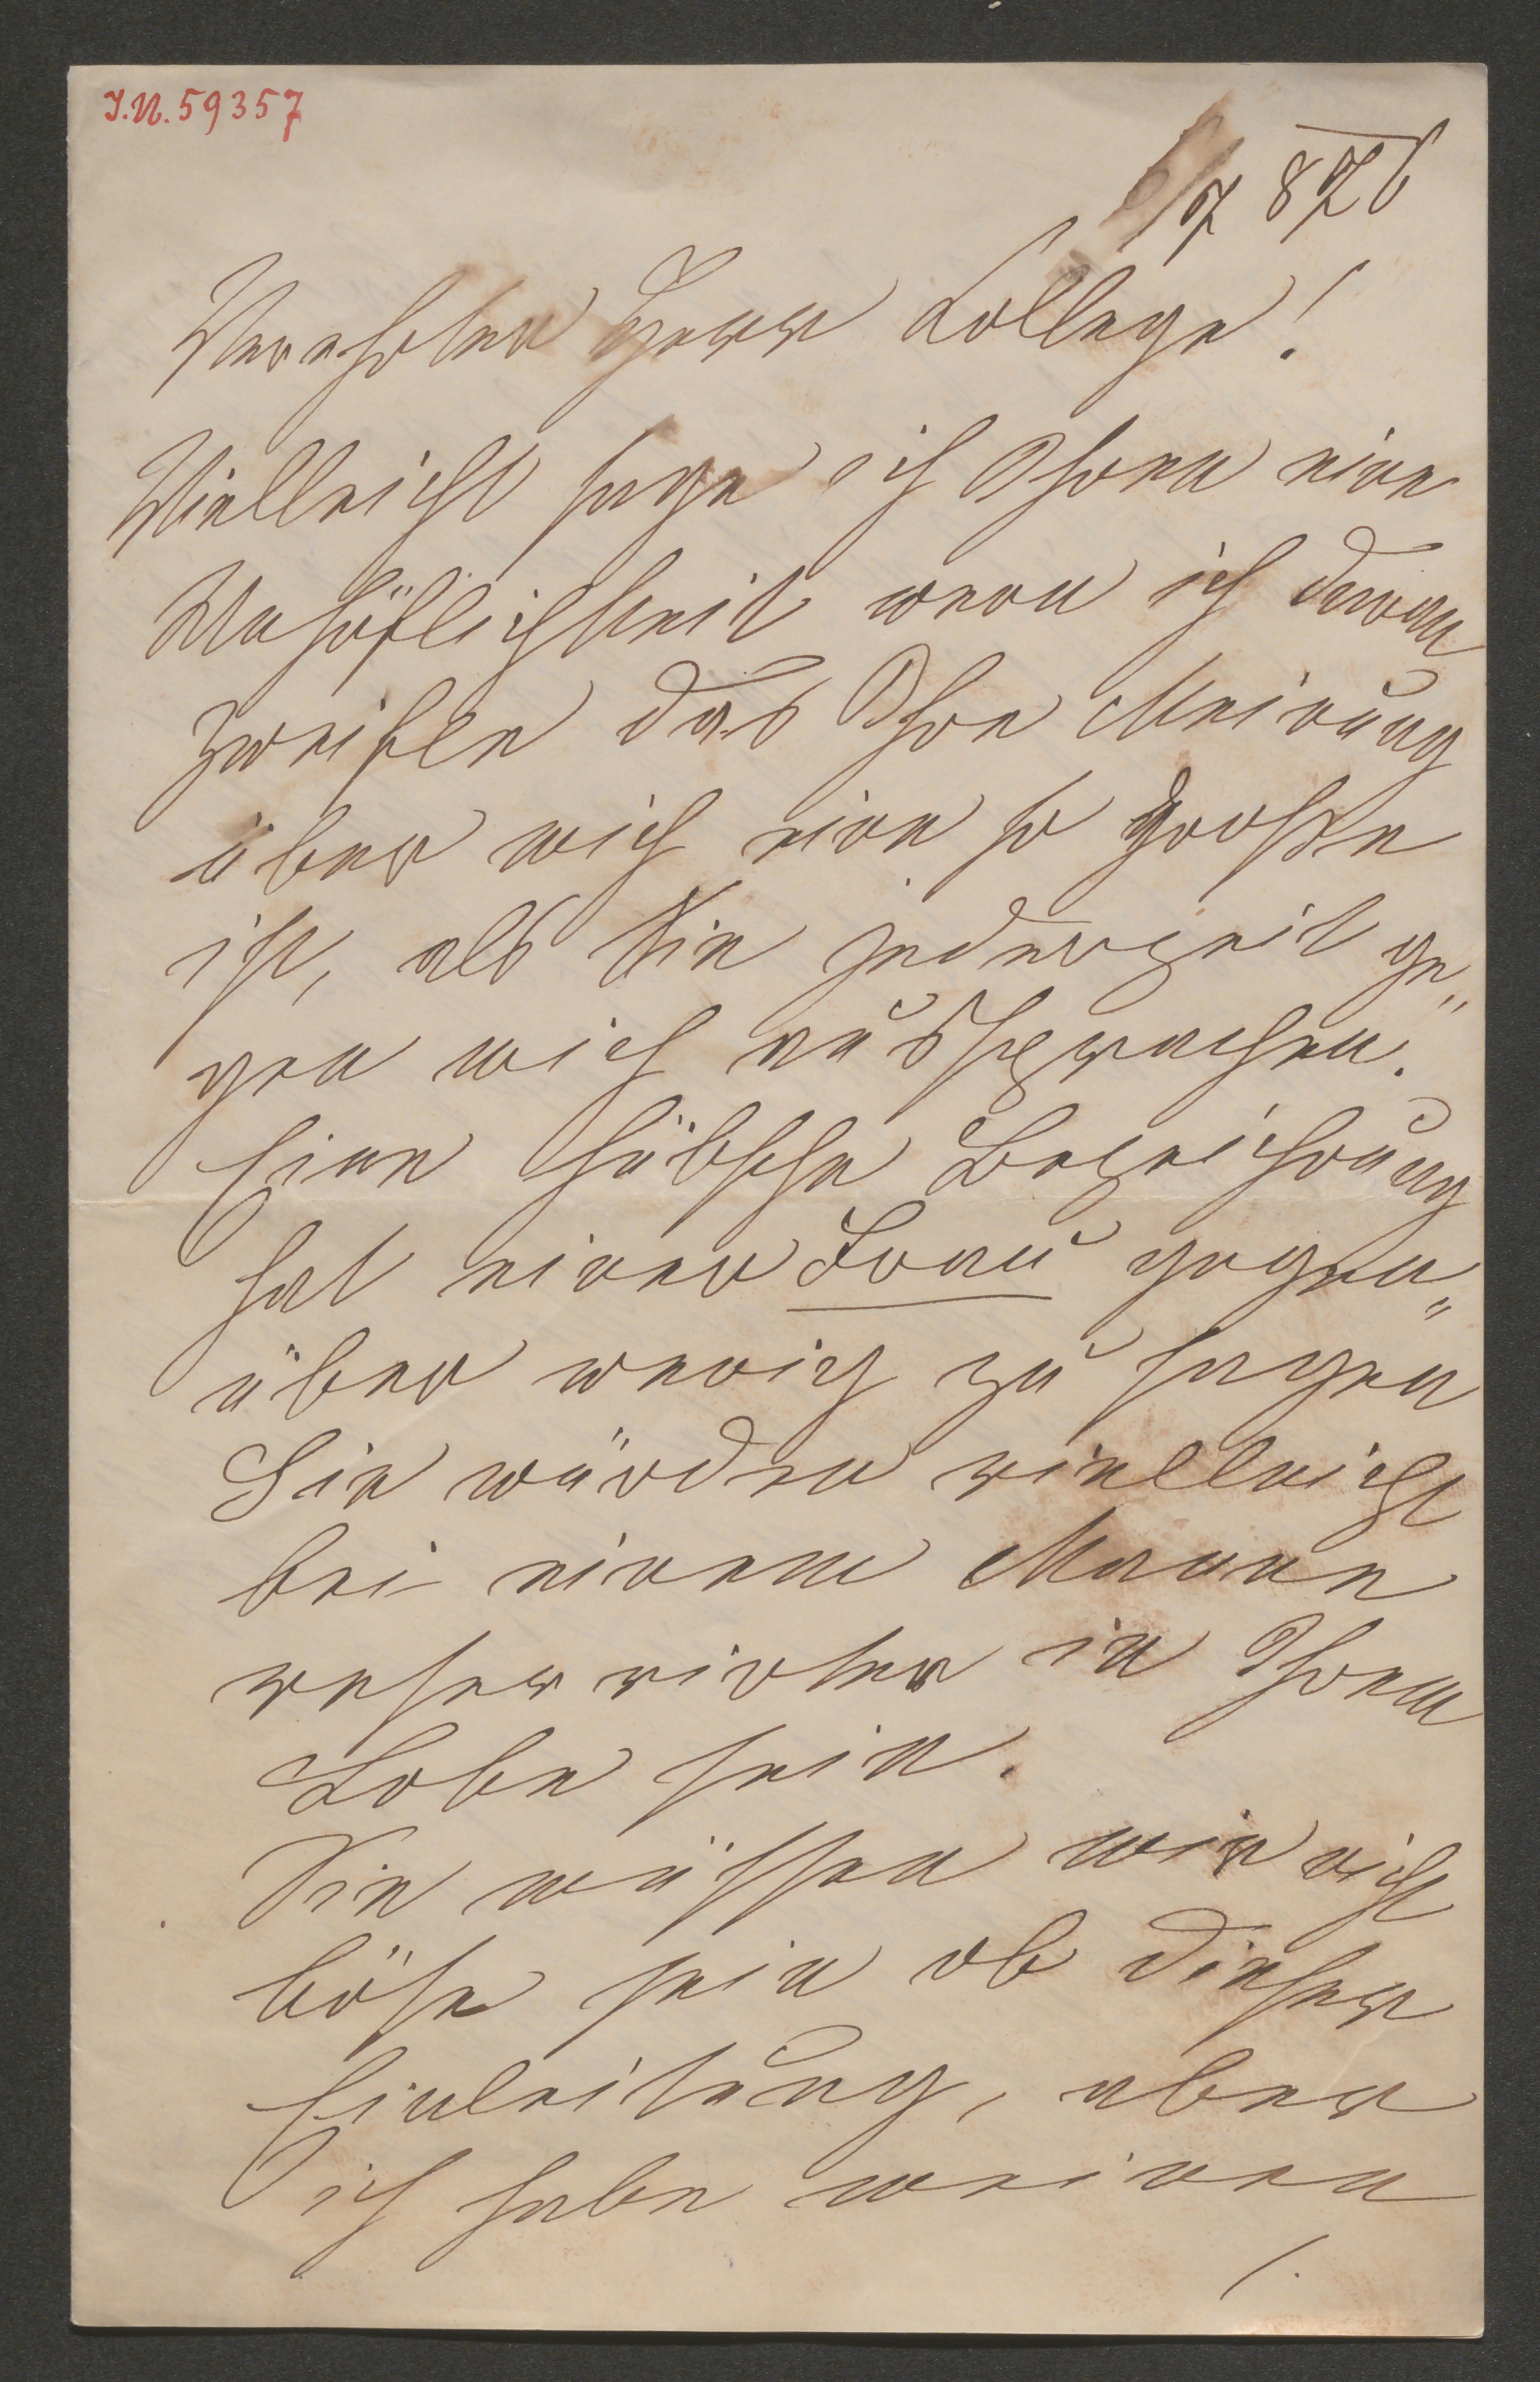 J.N. 59357
6/7 876
Verehrter Herr College!
Vielleicht sage ich Ihnen eine
Unhöflichkeit wenn ich daran
zweifle das Ihre Meinung
über mich eine so große
ist, als Sie jederzeit ge„
gen mich aussprachen.
Eine hübsche Bezeichnung
hat einer Frau gegen„
über wenig zu sagen
Sie würden vielleicht
bei einem Manne
reservirter in Ihrem
Lobe sein.
Sie müssen mir nicht
böse sein ob dieser
Einleitung, aber
ich habe meinen
/.